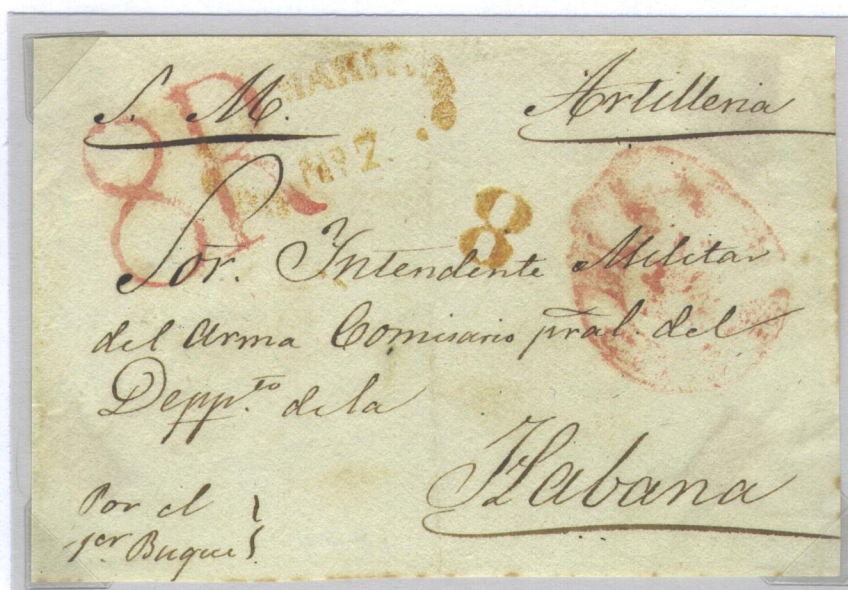 S. M. Artilleria
8R
Nº 2.
8
Sor. Intendente Militar
del Arma Comisario pral. del
Depp.to de la
Habana
Por el
1er Buque